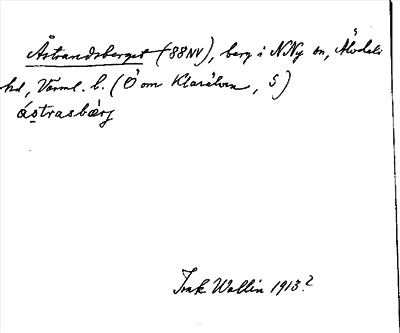 Åstrandsberget (88NV), berg i N Ny sn, Älvdals
hd, Värml. l. (Ö om Klarälven, S)
ástrasbærj
Isak Wallin 1913?